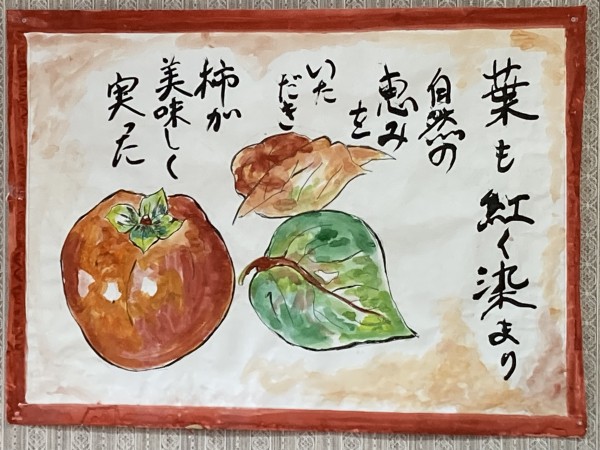 葉も紅く染まり
自然の
恵みを
いた
だき
柿が
美味しく
実った